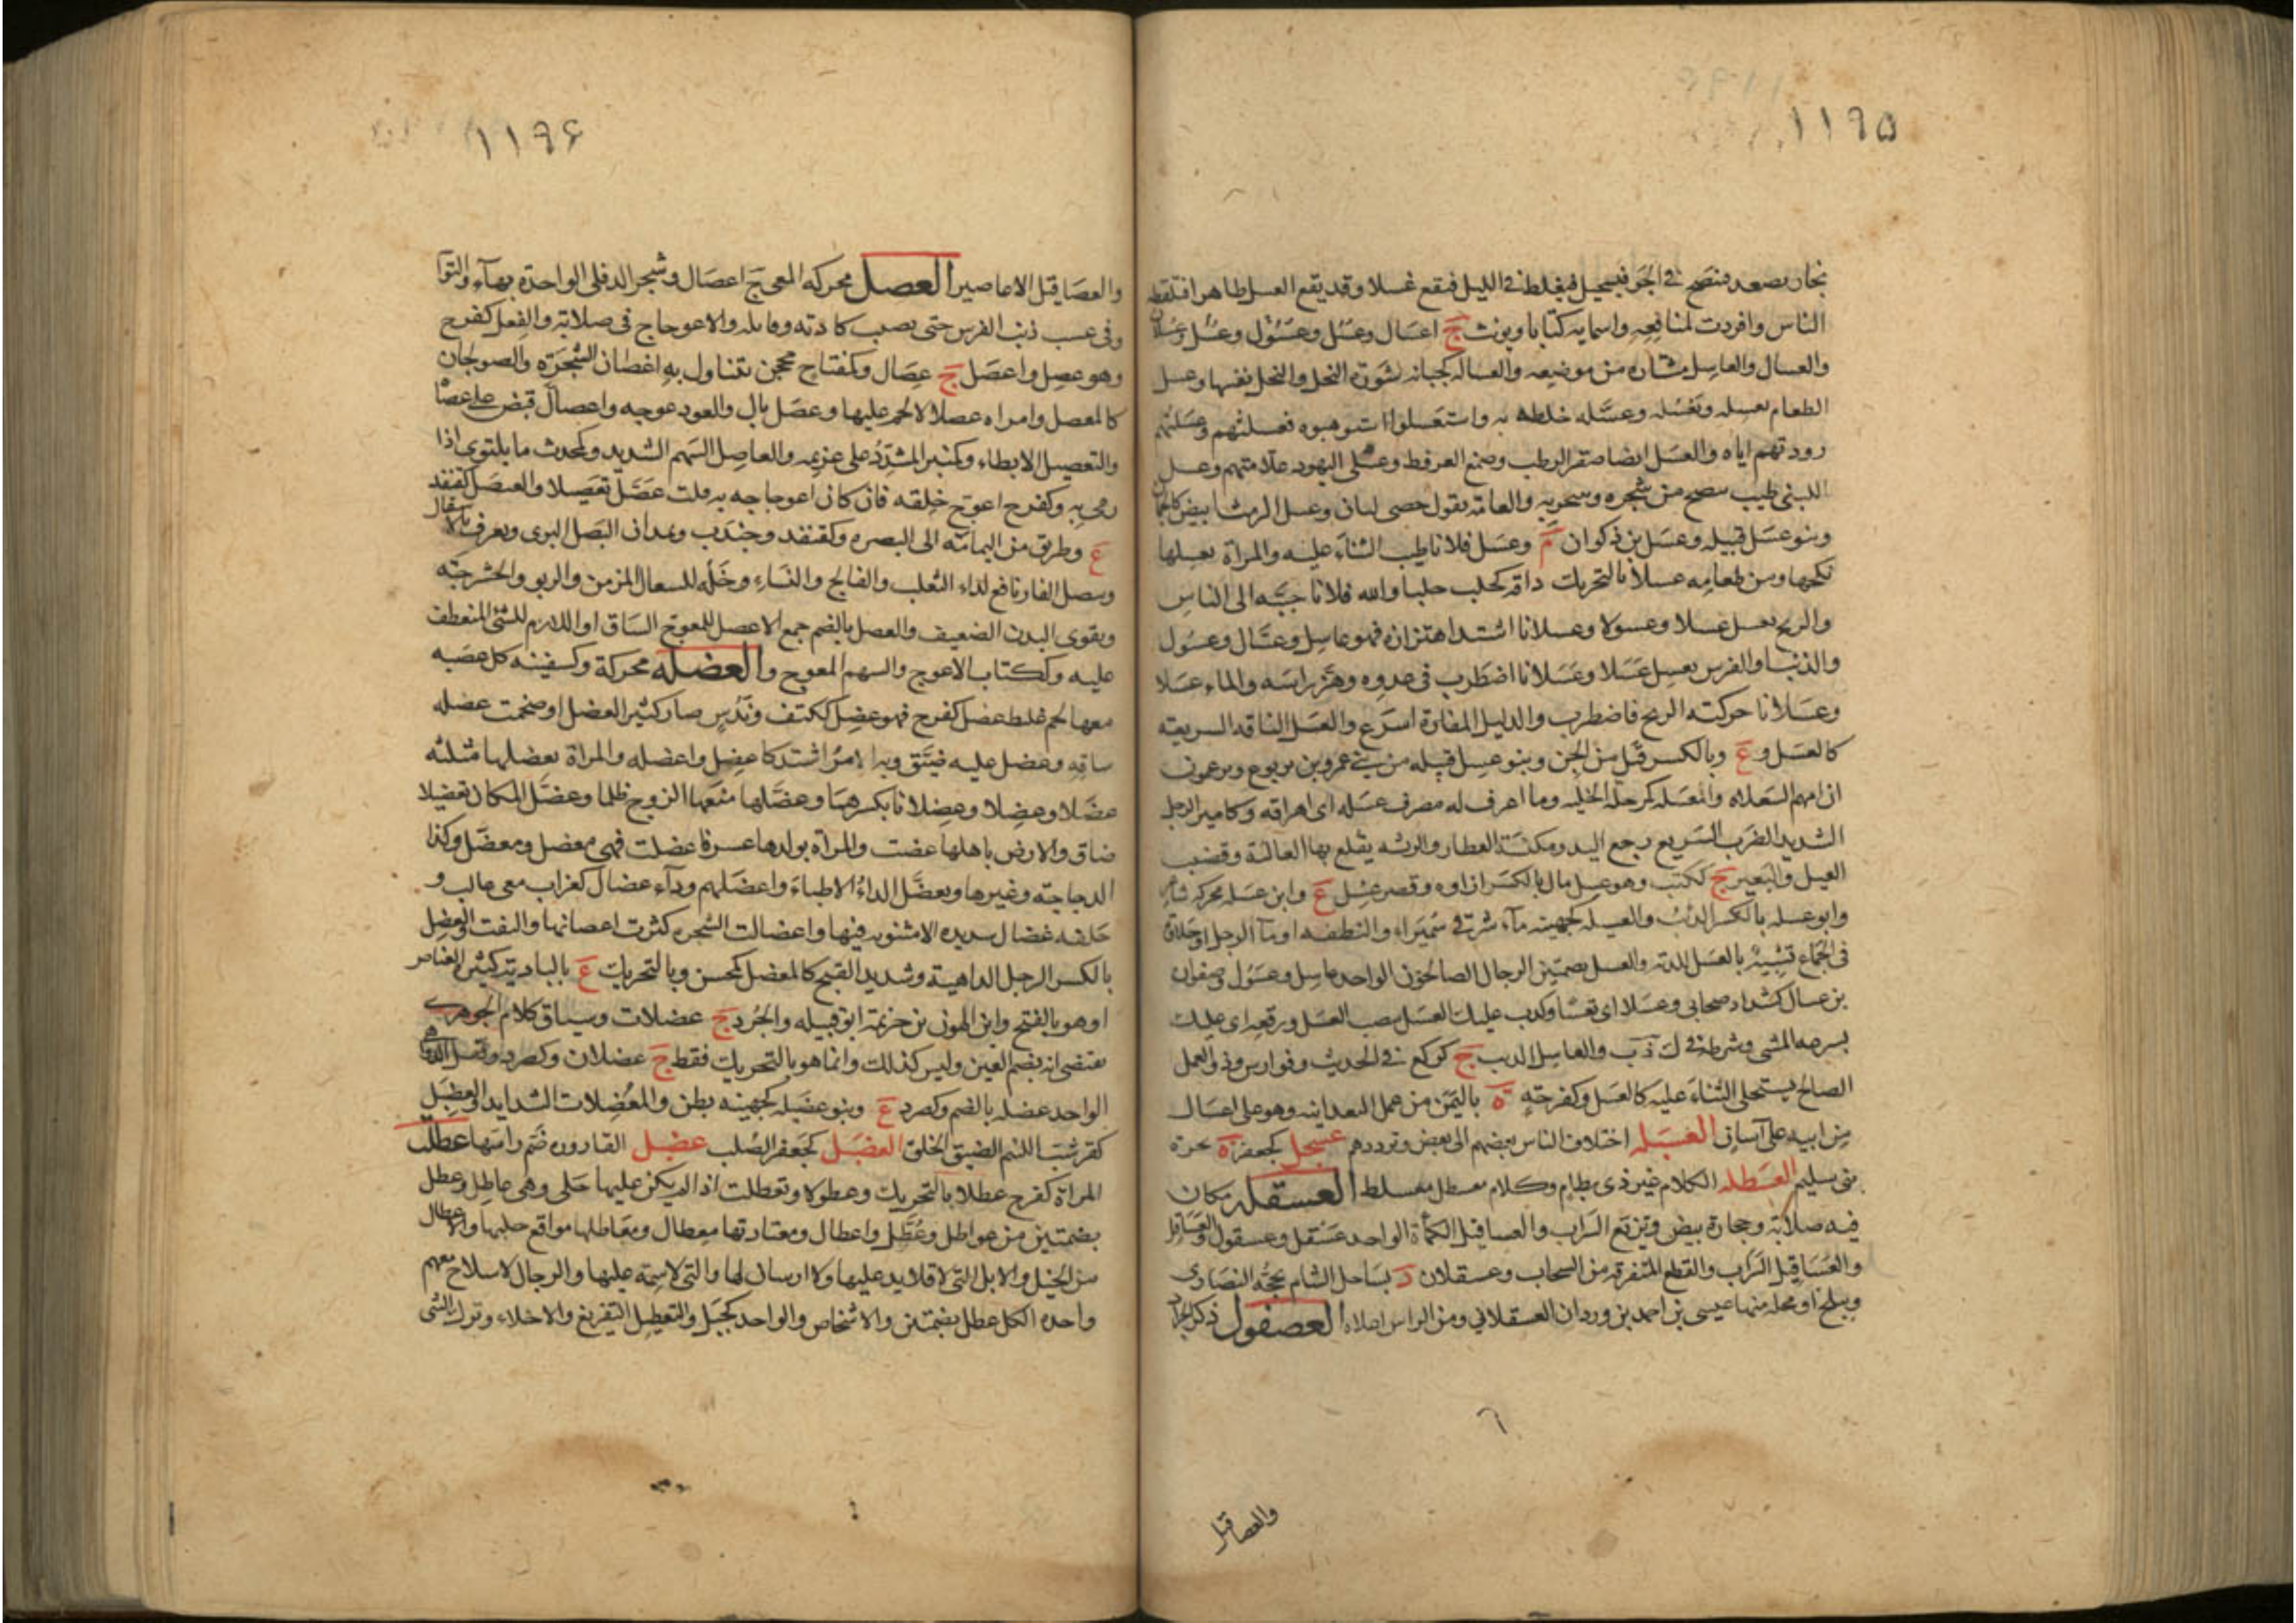 ١١٩٥
بخار يصعد فينضج فى الجو فيستحيل فيغلظ فى الليل فيقع عسلا وقد يقع العسل ظاهرا فتلقطه
الناس وافردت لمنافعه واسمايه كتابا ويونث ج اعسال وعسل وعسول وعسل وعسلان
والعسال والعاسل مشتاره من موضعه والعساله كجبانه شورة النحل والنحل نفسها وعسل
الطعام يعسله ويعسله وعسله خلطه به واستعسلوا استوهبوه فعسلتهم وعسلتهم
زودتهم اياه والعسل ايضا صقر الرطب وصمغ العرفط وعسلى اليهود علامتهم وعسل
اللبنى طيب ينضح من شجره ويتبخر به والعامة يقول حصى لبان وعسل الرمث ابيض كالجمان
وبنو عسل قبيله وعسل بن ذكوان م وعسل فلانا طيب الثناء عليه والمراة يعسلها
نكحها ومن طعامه عسلا بالتحريك ذاقه كحلب حلبا والله فلانا حببه الى الناس
والرمح يعسل عسلا وعسولا وعسلانا اشتد اهتزازه فهو عاسل وعسال وعسول
والذئب والفرس يعسل عسلا وعسلانا اضطرب فى عدوه وهز راسه والماء عسلا
وعسلانا حركته الريح فاضطرب والدليل المفازة اسرع والعسل الناقه السريعه
كالعسل و ع وبالكسر قبل من الجن وبنو عسل قبيله من بنى عمرو بن يربوع ويزعمون
ان امهم السعلاه والمعسله كمرحله الخليه وما اعرف له مضرب عسله اى اعراقه وكامير الرجل
الشديد الضرب السريع رجع اليد ومكنسة العطار والريشه يقلع بها الغاليه وقضيب
الفيل والبعير ج ككتب وهو عسل مال بالكسر ازاوه وقصر عسل ع وابن عسله محركه شاعر
وابو عسله بالكسر الذئب والعسيله كجهينه ماء شرقى سميراء والنطفه او ماء الرجل او حلاوة
فى الجماع تشبيه بالعسل للذته والعسل بضمتين الرجال الصالحون الواحد عاسل وعسول وصفوان
بن عسال كشداد صحابى وعسلا اى تعسا وكذب عليك العسل بنصب العسل ورفعه اى عليك
بسرعه المشى وشرحه فى ك ذ ب والعاسل الذيب ج كركع فى الحديث وفوارس وذو العمل
الصالح يستحلى الثناء عليه كالعسل وكفرحه ة باليمن من عمل البعدانيه وهو على اعسال
من ابيه على آسان العسبله اختلاف الناس بعضهم الى بعض وترددهم عسجل كجعفر ة بحرة
بنى سليم العسطله الكلام غير ذى نظام وكلام معسطل معسلط العسقله مكان
فيه صلابة وحجارة بيض وتريع السراب والعساقيل الكمأة الواحد عسقل وعسقول والعساقل
والعساقيل السراب والقطع المتفرقه من السحاب وعسقلان د بساحل الشام تحجه النصارى
وببلخ او محله منها عيسى بن احمد بن وردان العسقلانى ومن الراس اعلاه العصفول ذكر الجراد
والعصاقيل
١١٩٦
والعصاقيل الاعاصير العصل محركه المعى ج اعصال وشجر الدفلى الواحدة بهآء والتوآ
فى عسب ذنب الفرس حتى يصيب كاذته وفايله والاعوجاج فى صلابة والفعل كفرح
وهو عصل واعصل ج عصال وكمفتاح محجن يتناول به اغصان الشجرة والصولجان
كالمعصل وامراه عصلاء لا لحم عليها وعصل بال والعود عوجه واعصال قبض على عصا
والتعصيل الابطاء وكمنبر المشدد على غريمه والعاصل السهم الشديد وكمحدث ما يلتوى اذا
رمى به وكفرح اعوج خلقه فان كان اعوجاجه به قلت عصل تعصيلا والعنصل كقنفذ
ع وطريق من اليمامة الى البصره وكقنفذ وجندب ويمدان البصل البرى ويعرف بالاسقال
وبصل الفار نافع لداء الثعلب والفالج والنساء وخله للسعال المزمن والربو والحشرجه
ويقوى البدن الضعيف والعصل بالضم جمع الاعصل للمعوج الساق او اللازم للشئ المنعطف
عليه وككتاب الاعوج والسهم المعوج والعضله محركة وكسفينه كل عصبه
معها لحم غليظ عضل كفرح فهو عضل ككتف وندس صار كثير العضل او ضخمت عضله
ساقه وعضل عليه ضيق وبه الامر اشتد كاعضل واعضله والمراة يعضلها مثلثه
عضلا وعضلا وعضلانا بكسرهما وعضلها منعها الزوج ظلما وعضل المكان تعضيلا
ضاق والارض باهلها غصت والمراة بولدها عسر فاعضلت فهى معضل ومعضل وكذا
الدجاجة وغيرها وتعضل الداء الاطباء واعضلهم وداء عضال كغراب معى غالب و
حلفه عضال شديده لا مثنويه فيها واعضالت الشجره كثرت اغصانها والتفت والعضل
بالكسر الرجل الداهية وشديد القبح كالمعضل كمحسن وبالتحريك ع بالباديه كثير الغياض
او هو بالفتح وابن الهون بن خزيمة ابو قبيله والجرذ ج عضلات وسياق كلام الجوهرى
يقتضى انه بضم العين وليس كذلك وانما هو بالتحريك فقط ج عضلان وكصرد
الواحد عضله بالضم وكصرد ع وبنو عضيله كجهينه بطن والمعضلات الشدايد والعضبل
كقرشب اللئيم الضيق الخلق العضبل كجعفر الصلب عضهل القاروره ضم راسها عطلت
المراة كفرح عطلا بالتحريك وعطولا وتعطلت اذا لم يكن عليها حلى وهى عاطل وعطل
بضمتين من عواطل وعطل واعطال ومعتادتها معطال ومعاطلها مواقع حليها والاعطال
من الخيل والابل التى لا قلايد عليها ولا ارسان لها والتى لا سمة عليها والرجال لا سلاح معهم
واحده الكل عطل بضمتين والاشخاص والواحد كجبل والتعطيل التفريغ والاخلاء وترك الشى